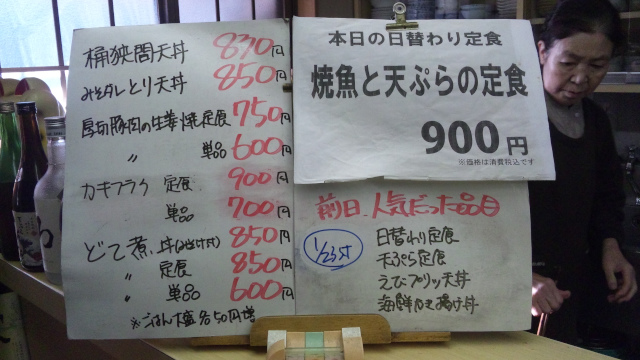 桶狭間天丼 830円
みそダレとり天丼 850円
厚切豚肉の生姜焼定食 750円
〃 単品 600円
カキフライ 定食 900円
単品 700円
どて煮丼(みそ汁付) 850円
〃 定食 850円
〃 単品 600円
※ごはん大盛各50円増
本日の日替わり定食
焼魚と天ぷらの定食
900円
※価格は消費税込です
前日 人気だった品目
日替わり定食
天ぷら定食
えびプリッ天丼
海鮮かき揚げ丼